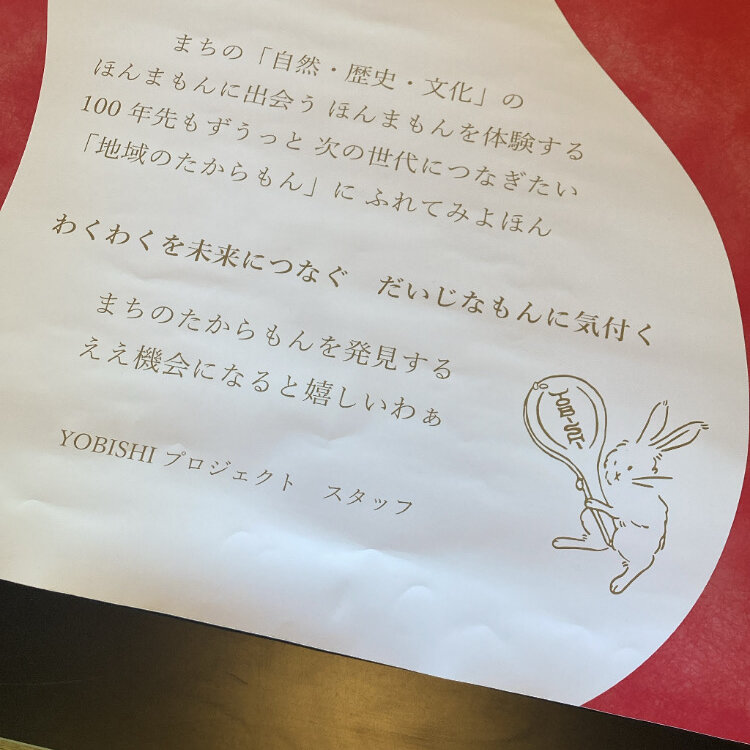 まちの「自然・歴史・文化」の
ほんまもんに出会う ほんまもんを体験する
100 年先もずうっと 次の世代につなぎたい
「地域のたからもん」に ふれてみよほん
わくわくを未来につなぐ　だいじなもんに気付く
まちのたからもんを発見する
ええ機会になると嬉しいわぁ
YOBISHI プロジェクト　スタッフ